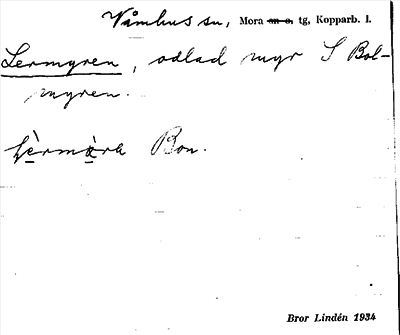 Våmhus sn, Mora tg, Kopparb. l.
Lermyren, odlad myr S Bol-
myren.
Bon.
Bror Lindén 1934